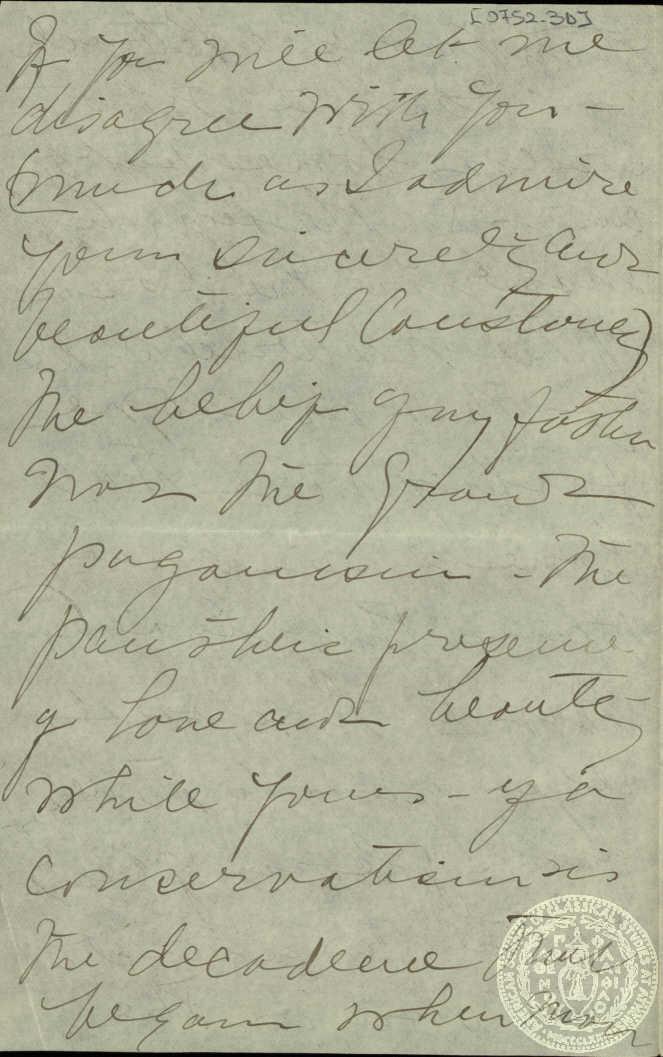 [0752-30]
If you will let me
disagree with you -
(much as I admire
your sincerely and
beautiful Constancy)
the belief of my father
was the grand
paganism - the
pantheic presence
of love and beauty
while yours - of a
conservatism is
the decadence that
began when man